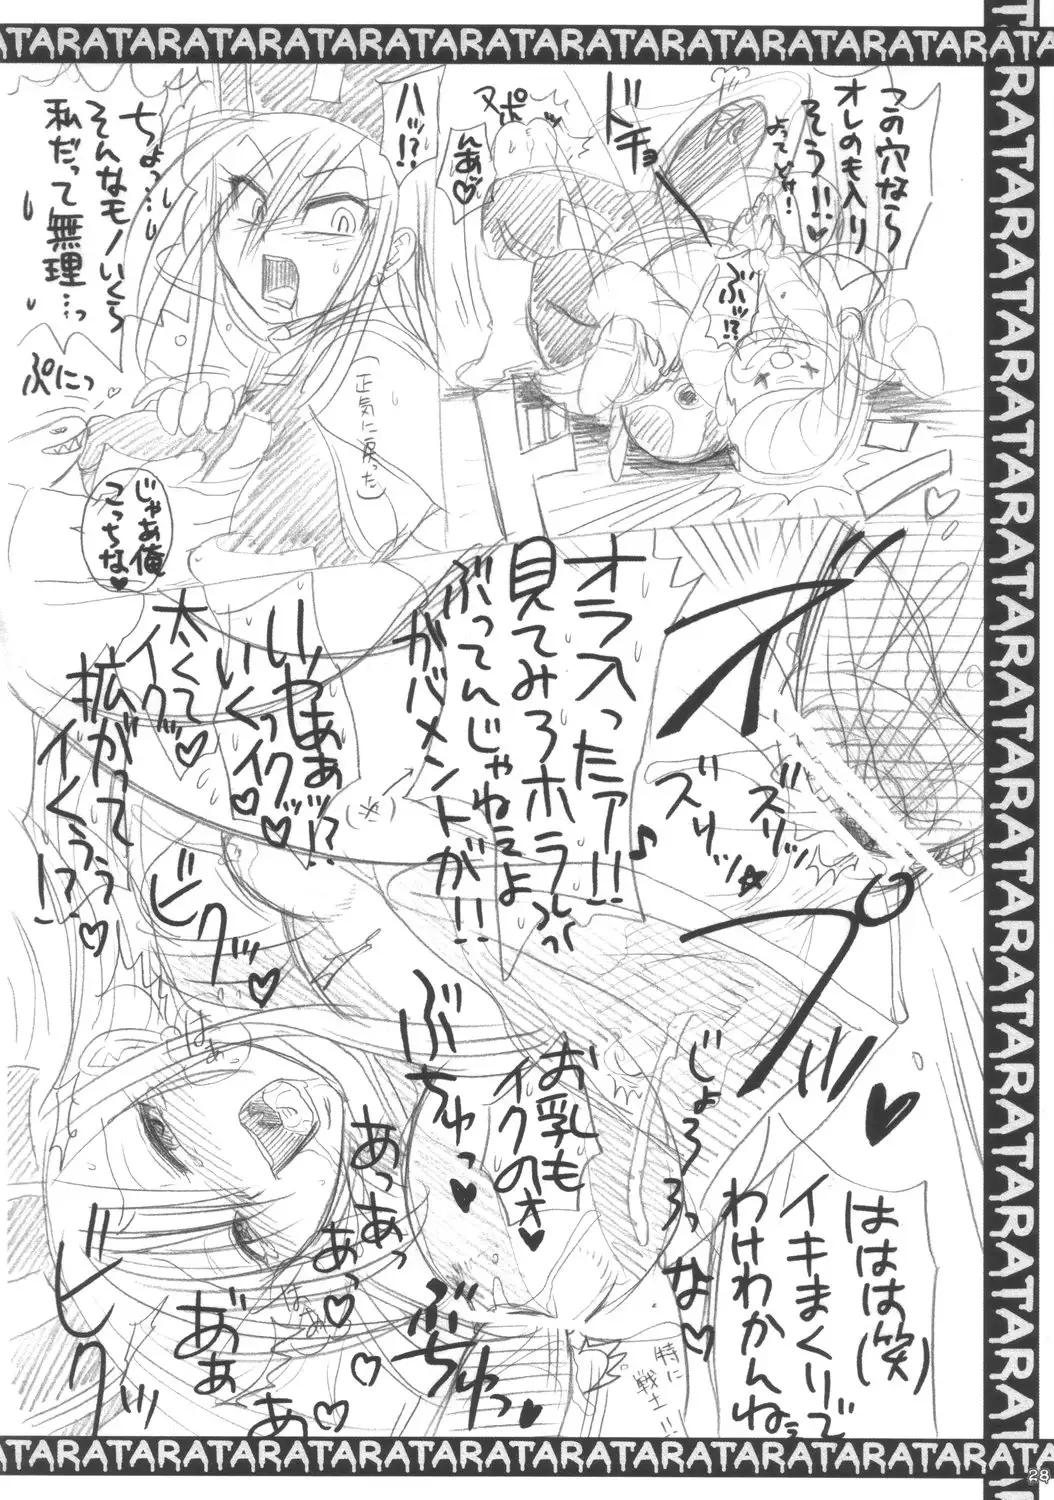 この穴なら
オレのも入り
そう!!♥
よっ
ドチョ
ヌポッ
んあっ♥
ぶッ!?
ハッ!?
ちょっ……
そんなモノいくら
私だって無理…っ
ぷにっ
(正気に戻った)
じゃあ俺
こっちな♥
オラ入ったァ!!♪
見てみろホラ
ぶってんじゃねぇよ
ガバメントが!!
ズリッ
ズリッ☆
いやあぁッ!?
いくっイクッ♥
太くて
イクッ♥
拡がって
イくぅぅ!?♥
ビクッ♥
ぶちゅっ♥
お乳も
イクのぉ♥
じょろろっ
な♥
ははは(笑)
イキまくりで
わけわかんねぇ
はぁ
あっあっ
あっ♥
あぁぁ
ビク
ぶちゅっ♥
特に
戦士!!
RATARATARATARATARATARATARATARATA
28